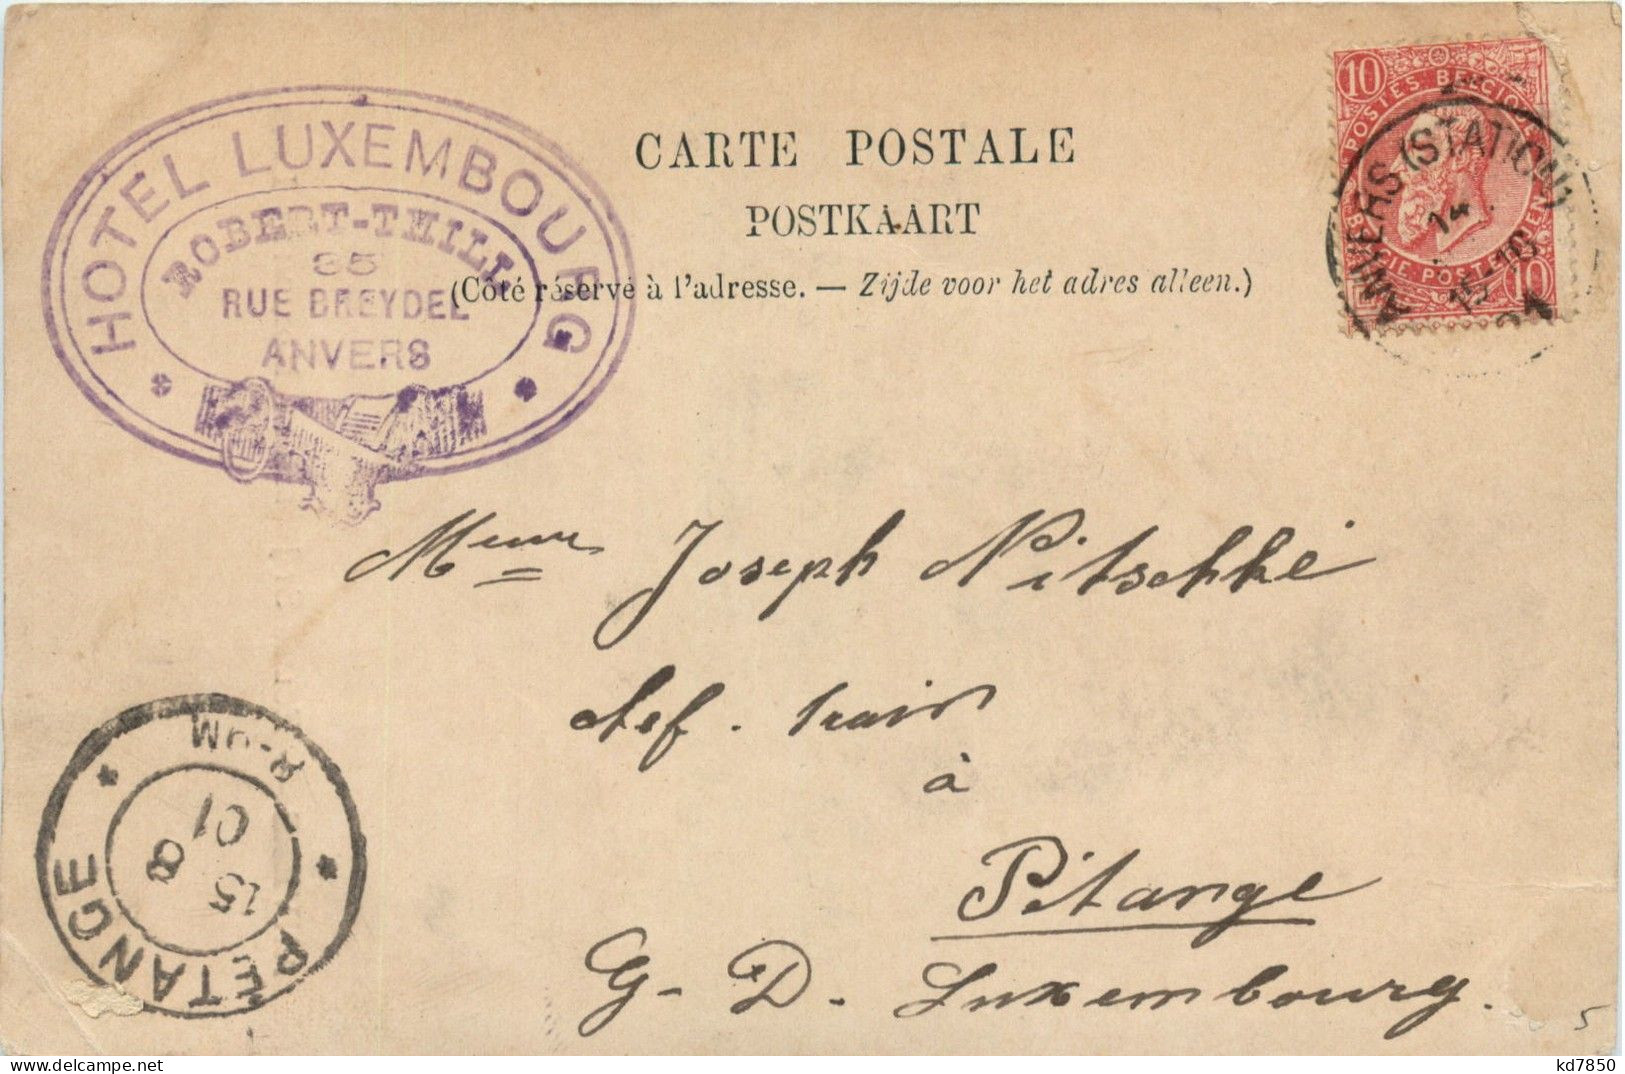 HOTEL LUXEMBOURG
ROBERT-THILL
35
RUE BREYDEL
ANVERS
CARTE POSTALE
POSTKAART
(Côté réservé à l'adresse. — Zijde voor het adres alleen.)
10 POSTES BELGIQUE
BELGIE POSTERIJEN 10
ANVERS (STATION)
14
15-16
Joseph Nitschké
chef-train
à
Pétange
G-D. Luxembourg.
PETANGE
8-9M
15 8
01
5
kd7850